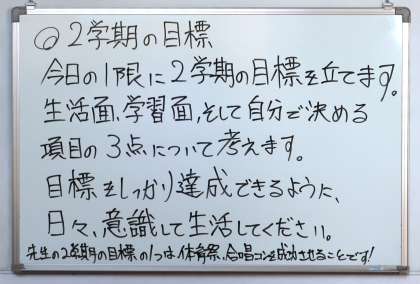 ◎2学期の目標
今日の1限に2学期の目標を立てます。
生活面、学習面、そして自分で決める
項目の3点について考えます。
目標をしっかり達成できるように、
日々、意識して生活してください。
先生の2学期の目標の1つは、体育祭、合唱コンを成功させることです!